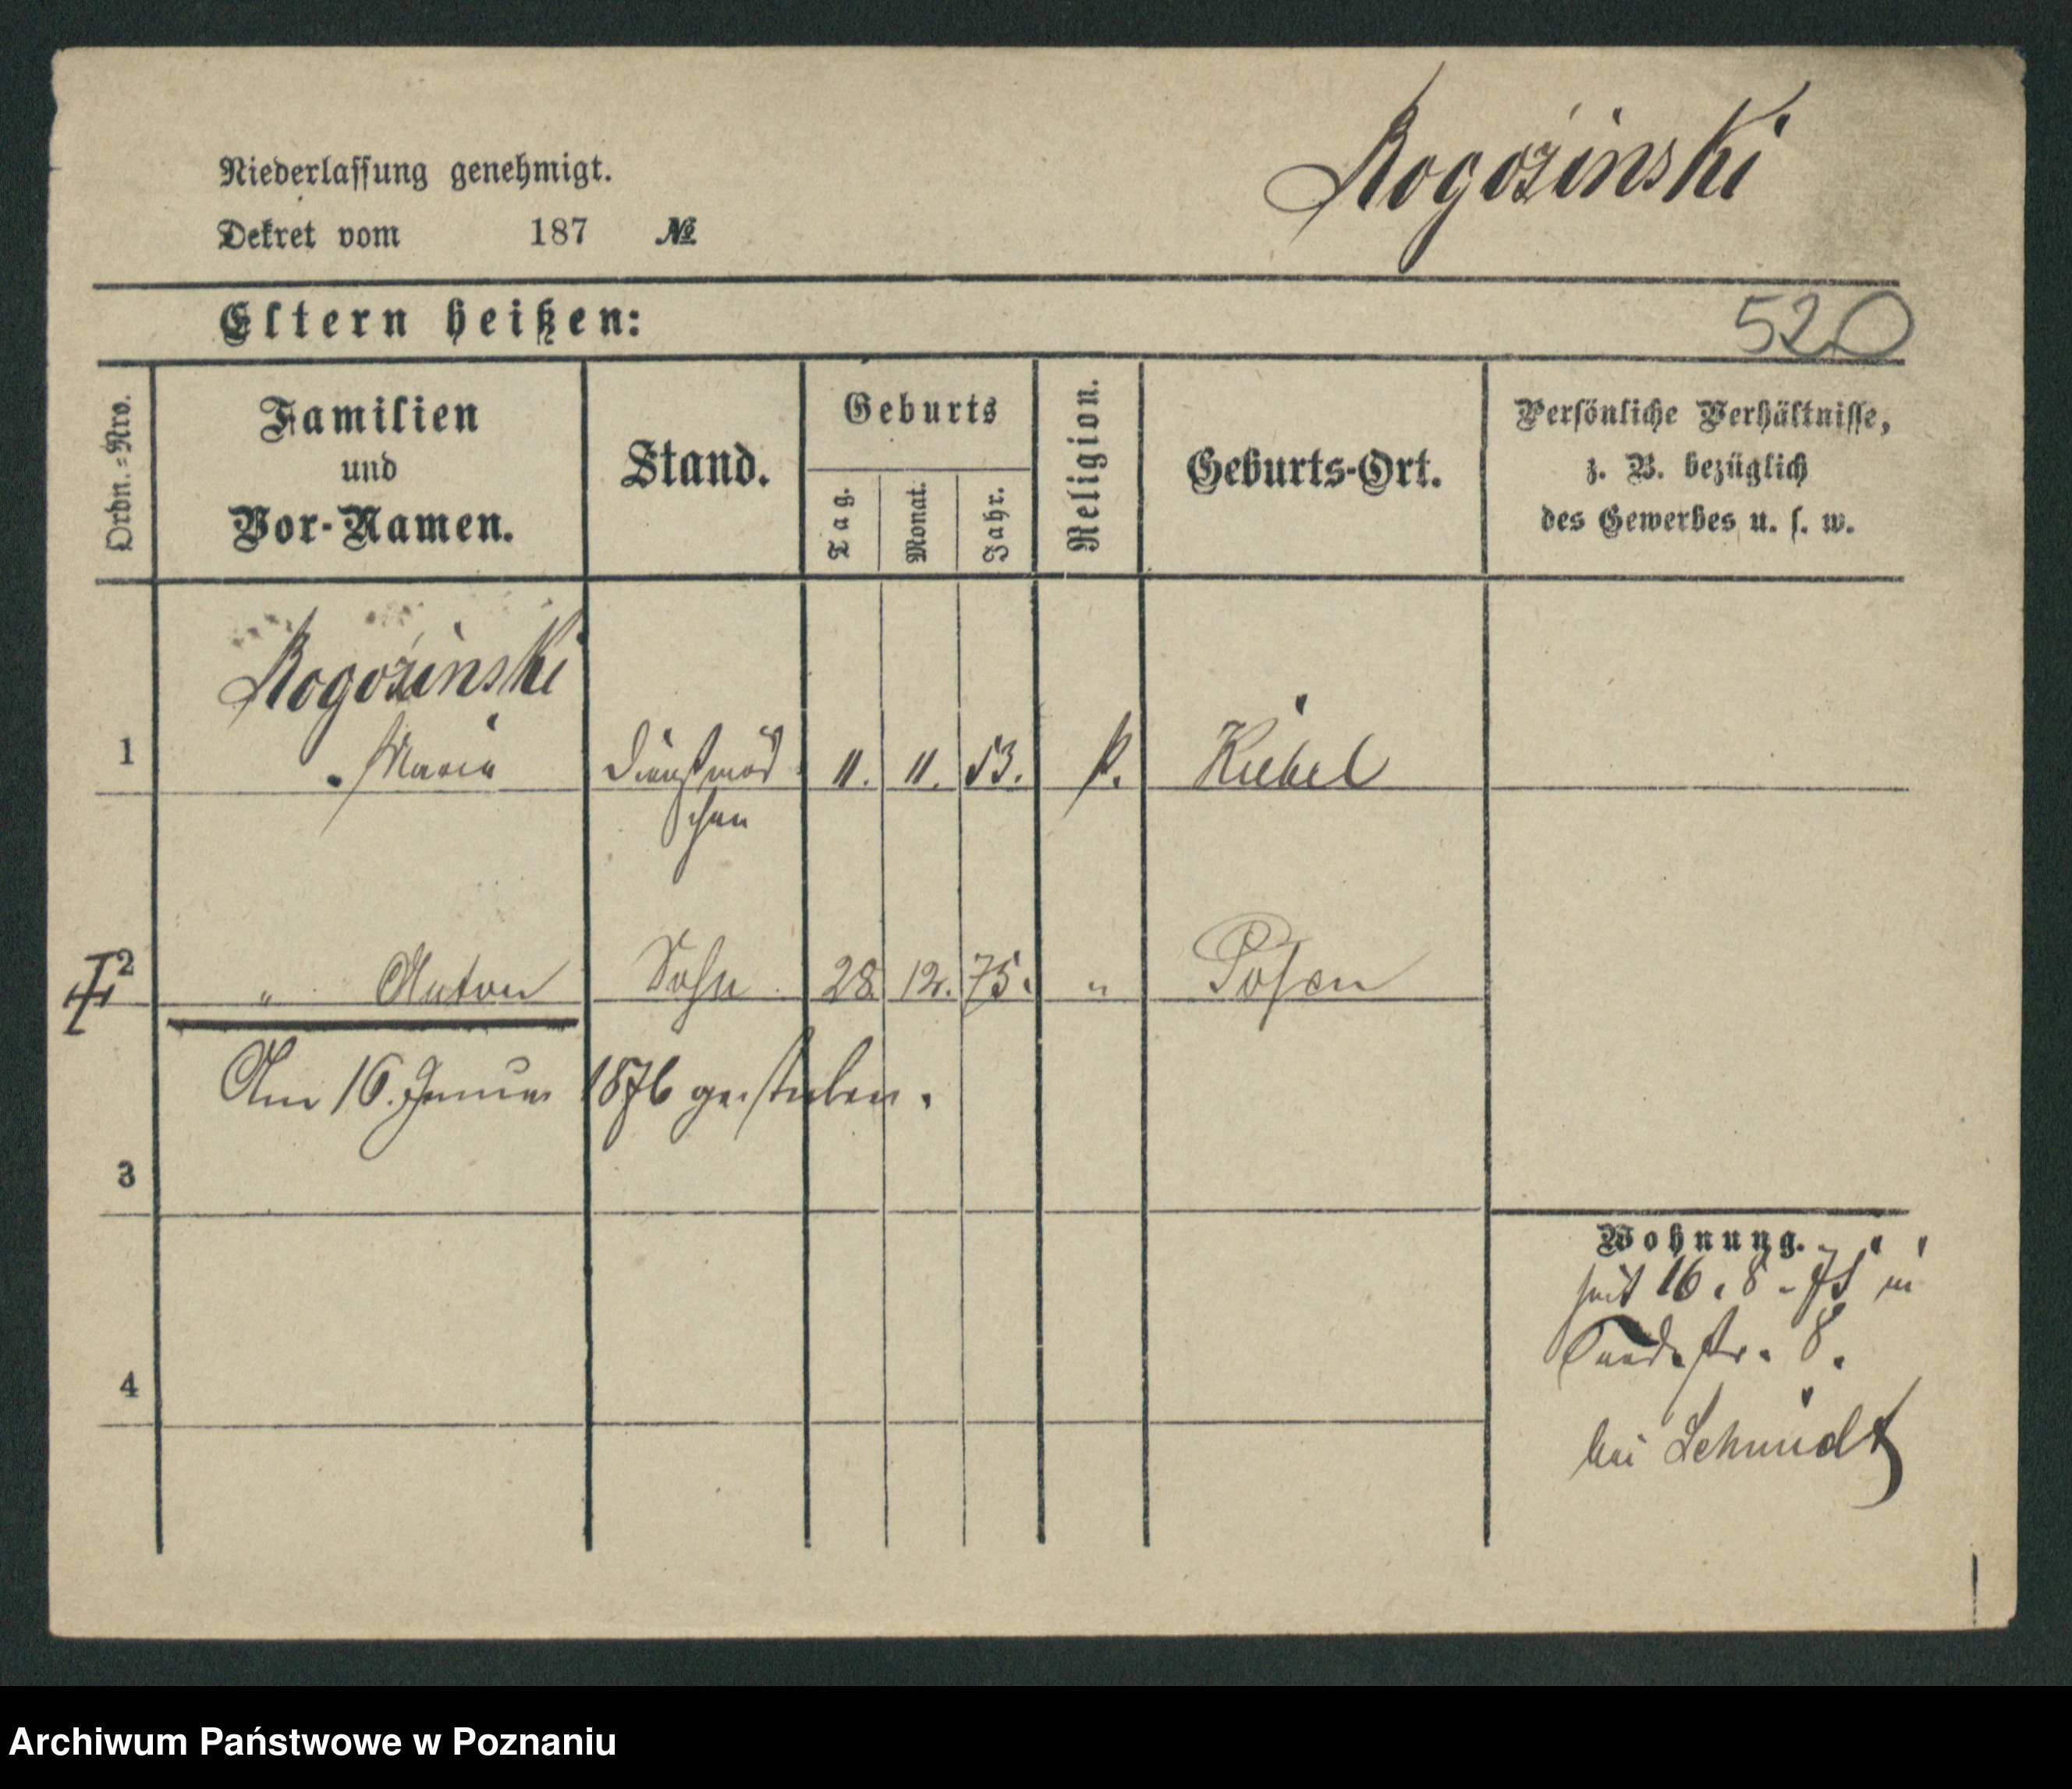 Niederlassung genehmigt.
Rogoziński
Dekret vom 187 №
Eltern heißen:
520
Ordn.=Nro.
Familien
und
Vor-Namen.
Stand.
Geburts
Tag.
Monat.
Jahr.
Religion.
Geburts-Ort.
Persönliche Verhältnisse,
z. B. bezüglich
des Gewerbes u. s. w.
Rogoziński
1 Maria Dienstmäd 11. 11. 53. k. Kiebel
chen
2 " Anton Sohn 28. 12. 75. " Posen
Am 16. Januar 1876 gestorben.
3
Wohnung.
seit 16. 8. 75 in
str. 8.
4
bei Schmidt
Archiwum Państwowe w Poznaniu